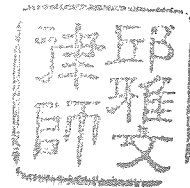 邱雅文
律師